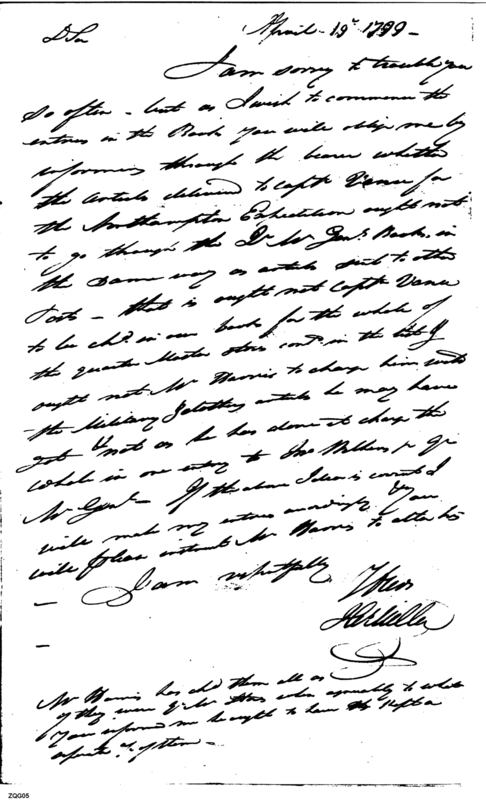 D Sir April 19th 1799 -
I am sorry to trouble you
so often - but as I wish to commence the
entries in the Book you will oblige me by
informing through the bearer whether
the articles delivered to Capt Vance for
the Northampton Expedition ought not
to go through the Qr Mr Genls Books in
the same way as articles sent to other
Posts - that is ought not Capt Vance
to be chd in our books for the whole of
the quarter Master stores contd in the list &
ought not Mr Harris to charge him with
the Military & clothing articles he may have
got & not as he has done it charge the
whole in one entry to Jno Wilkins jr Qr
Mr Genl - If the above Idea is correct I
will make my entries accordingly & you
will please instruct Mr Harris to alter his
- I am respectfully
Yours
-
Mr Harris has chd them all as
if they were Qr Mr Stores when agreeably to what
you informed me he ought to have kept a
seperate of them -
ZQG05